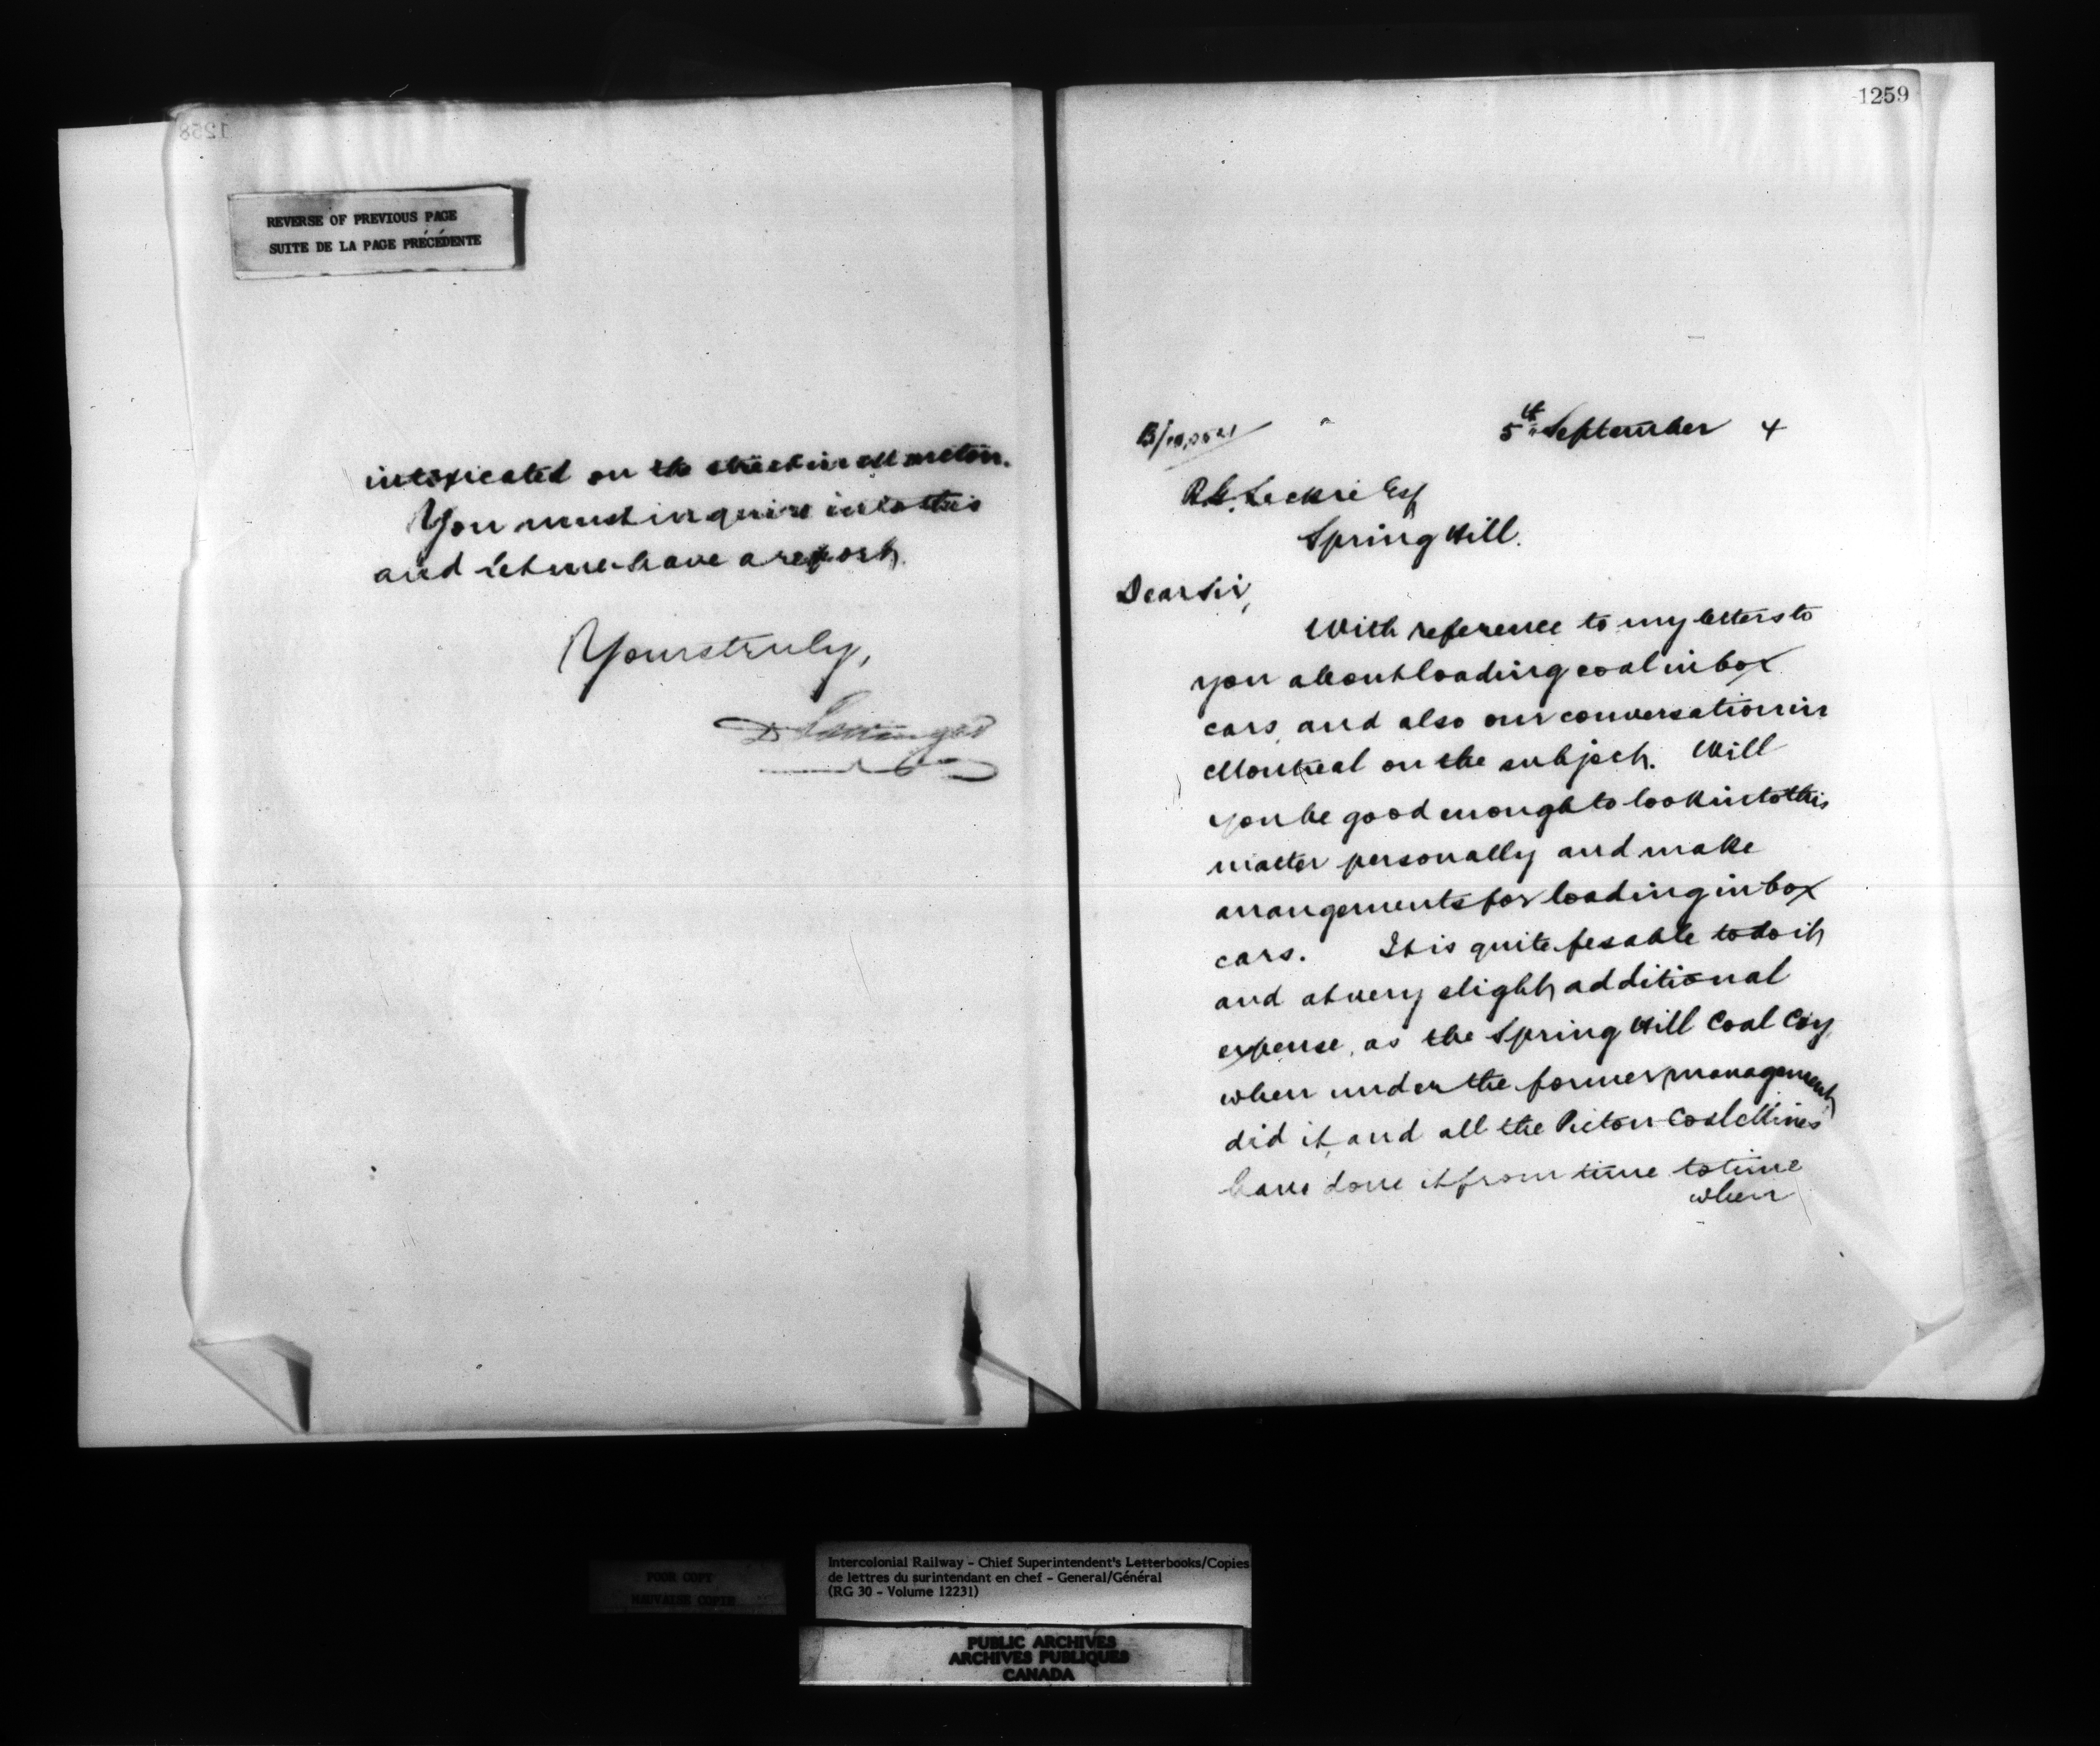 1258
REVERSE OF PREVIOUS PAGE
SUITE DE LA PAGE PRÉCÉDENTE
intoxicated on the street in Moncton.
You must inquire into this
and let me have a report.
Yours truly,
D Pottinger
1259
5th September 4
R.G. Leckie Esq
Spring Hill.
Dear Sir,
With reference to my letters to
you about loading coal in box
cars, and also our conversation in
Montreal on the subject. Will
you be good enough to look into this
matter personally and make
arrangements for loading in box
cars. It is quite fesable to do it
and at very slight additional
expense, as the Spring Hill Coal Coy,
when under the former management
did it, and all the Pictou Coal Mines
have done it from time to time
when
POOR COPY
MAUVAISE COPIE
Intercolonial Railway - Chief Superintendent's Letterbooks/Copies
de lettres du surintendant en chef - General/Général
(RG 30 - Volume 12231)
PUBLIC ARCHIVES
ARCHIVES PUBLIQUES
CANADA